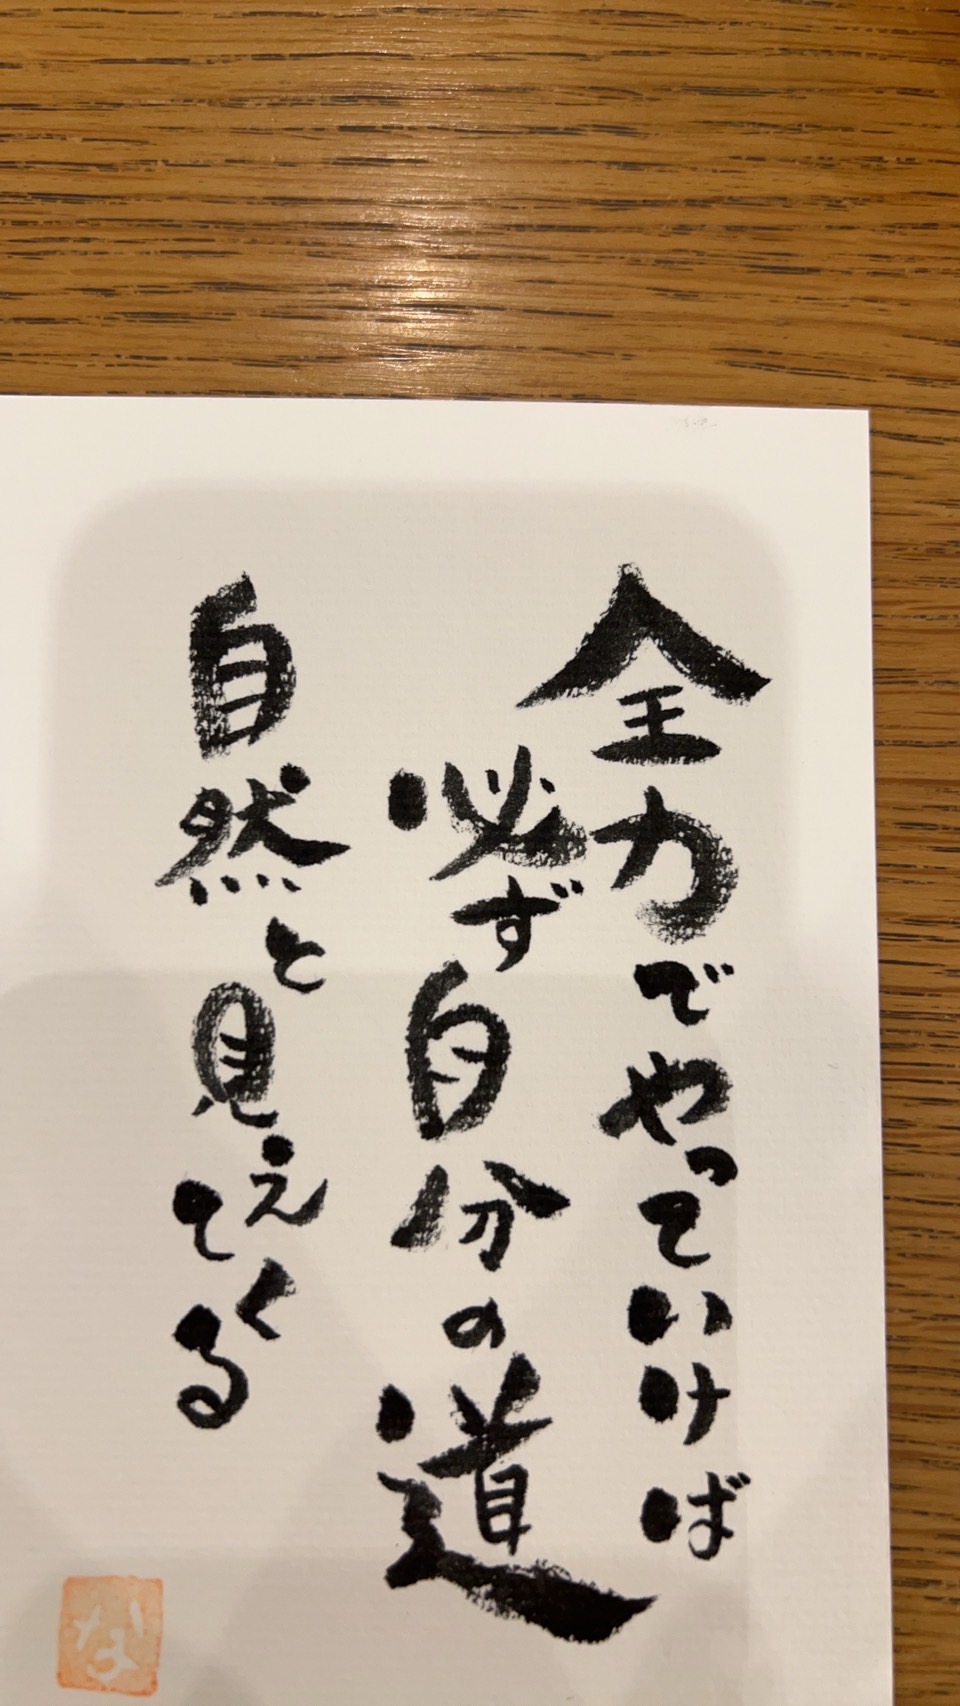 全力でやっていけば
必ず自分の道
自然と見えてくる
な